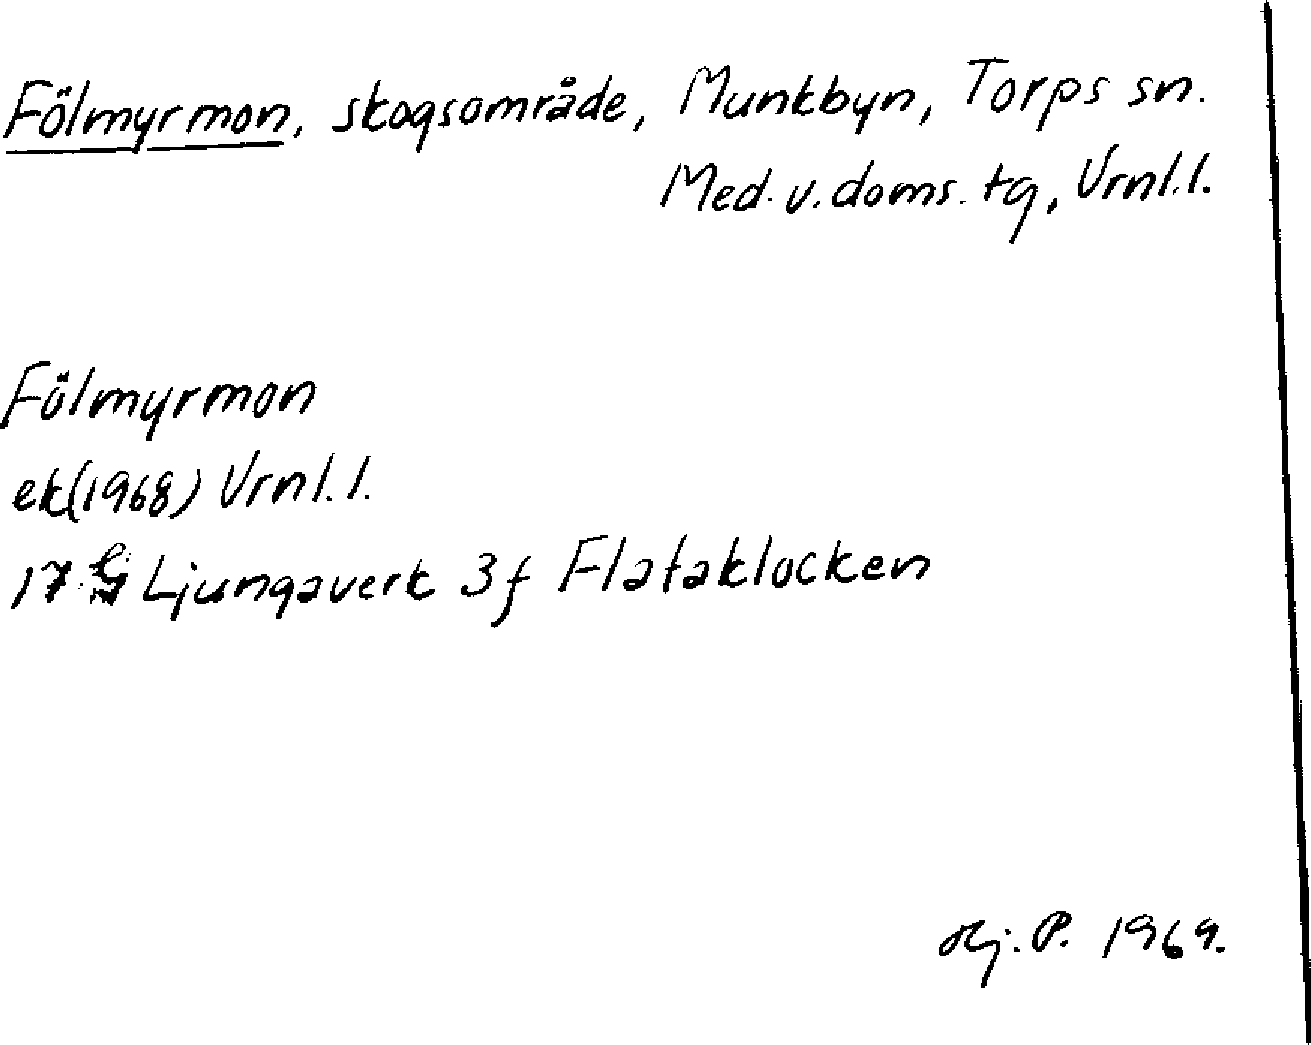 Fölmyrmon, skogsområde, Munkbyn, Torps sn.
Med. v. doms. tg, Vrnl. l.
Fölmyrmon
ek (1968) Vrnl. l.
17 G Ljungaverk 3f Flataklocken
Hj. P. 1969.